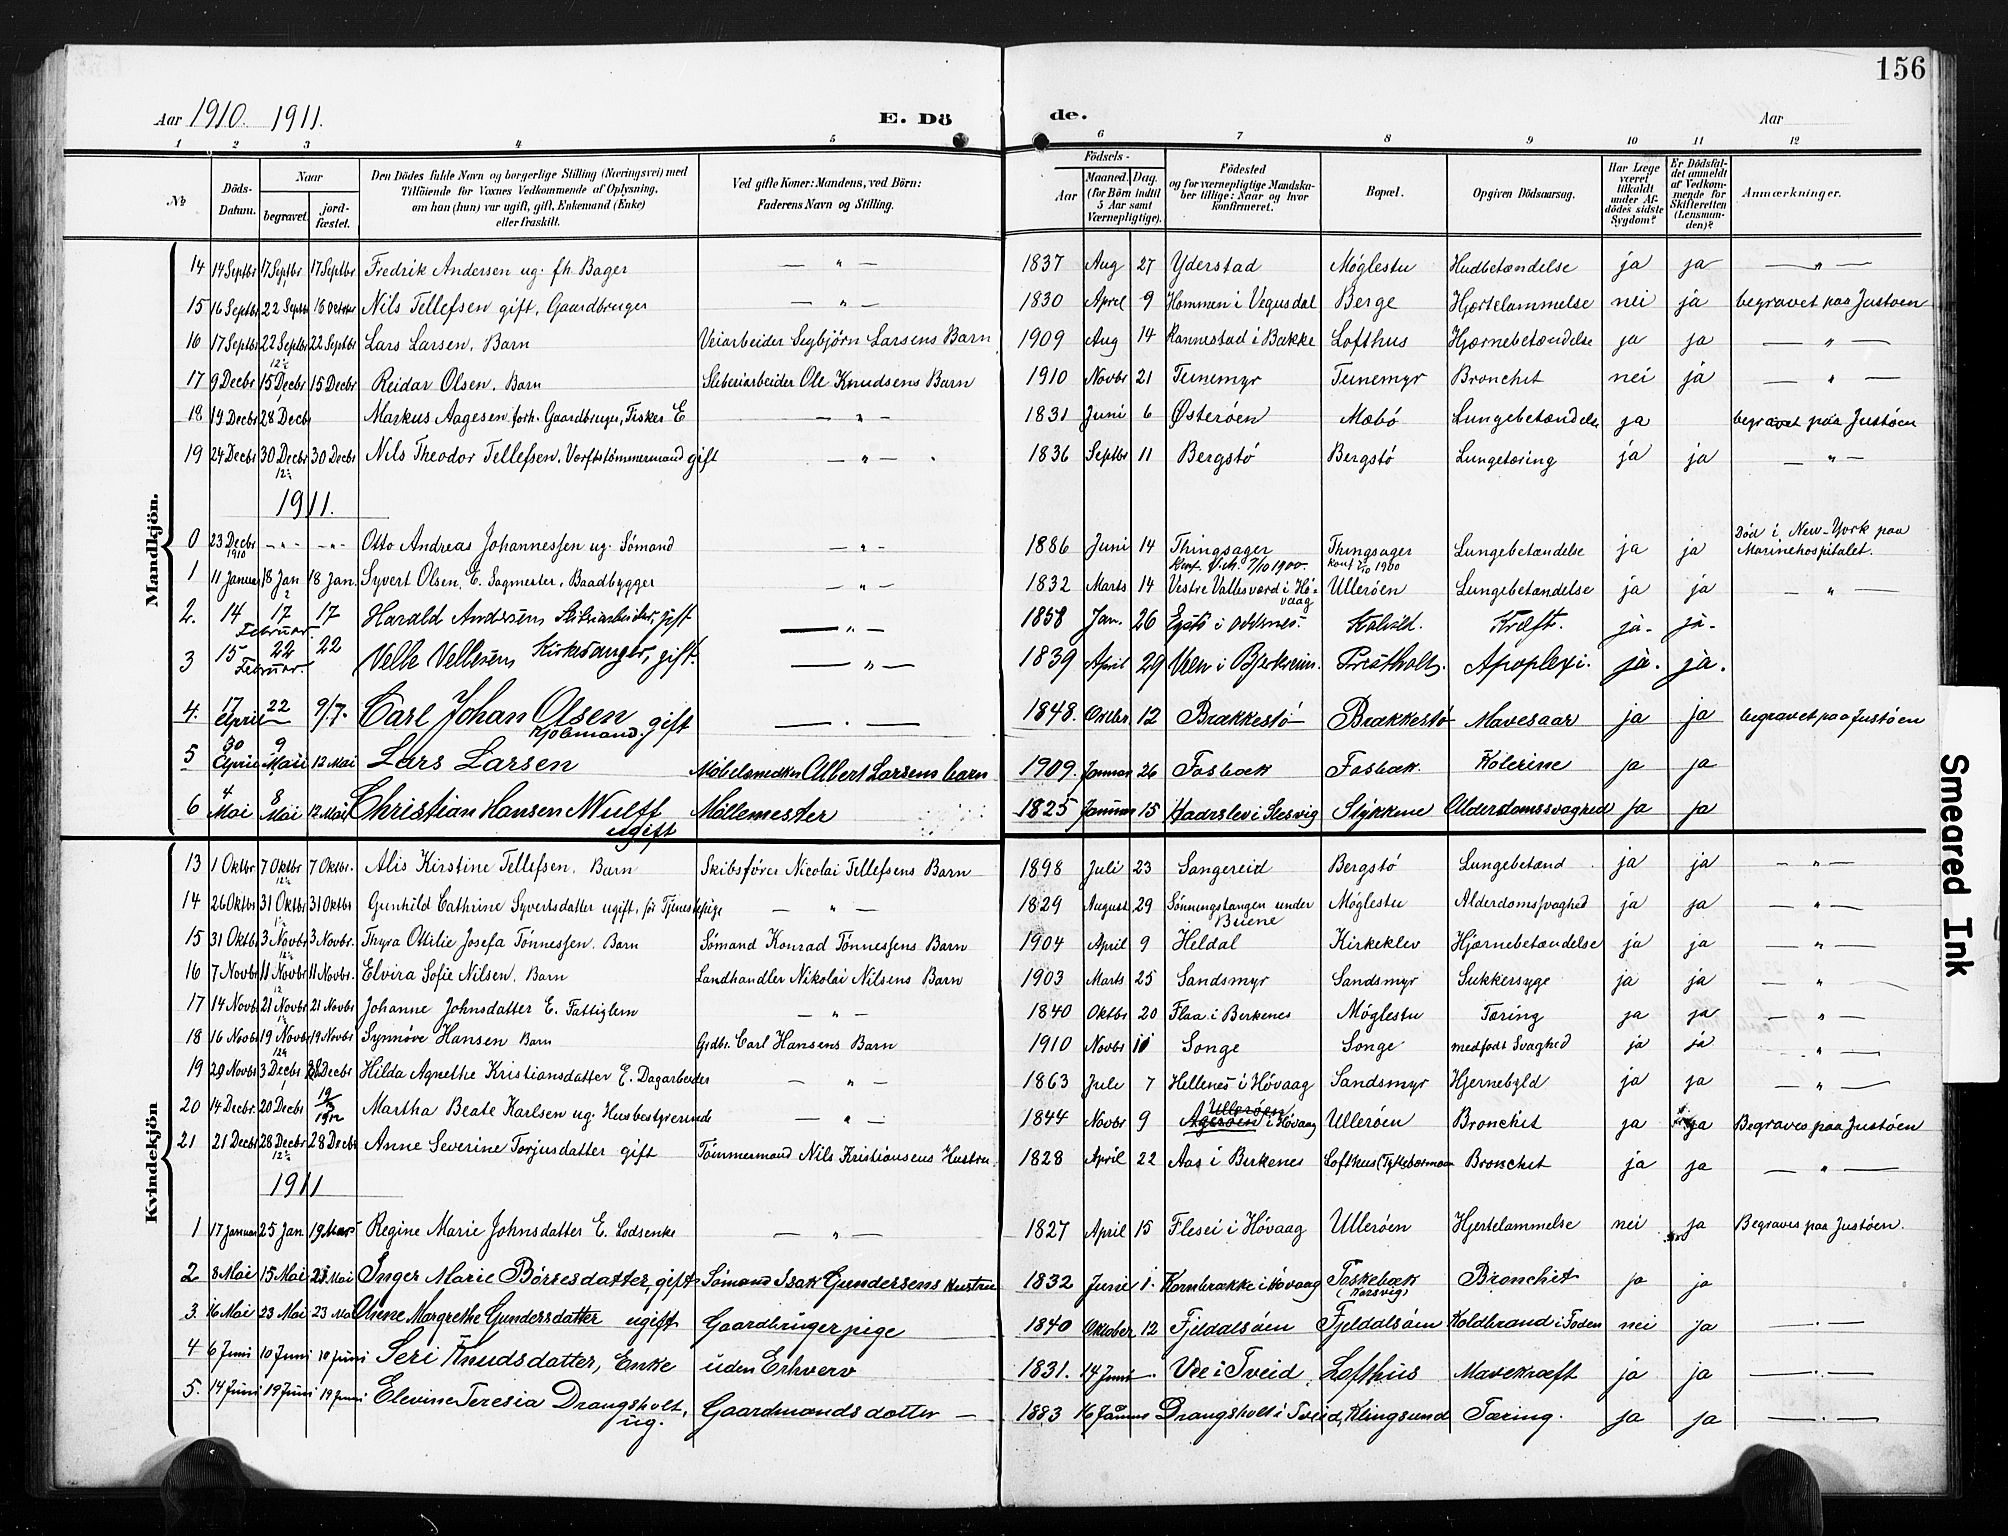 156
Aar 1910. 1911. E. Dö de. Aar
1 2 3 4 5 6 7 8 9 10 11 12
№ Döds-Datum. Naar begravet. jordfæstet. Den Dödes fulde Navn og borgerlige Stilling (Næringsvei) med Tilföiende for Voxnes Vedkommende af Oplysning, om han (hun) var ugift, gift, Enkemand (Enke) eller fraskilt. Ved gifte Koner: Mandens, ved Börn: Faderens Navn og Stilling. Födsels- Aar Maaned. Dag. (for Börn indtil 5 Aar samt Værnepligtige). Födested og for værnepligtige Mandskaber tillige: Naar og hvor konfirmeret. Bopæl. Opgiven Dödsaarsag. Har Læge været tilkaldt under Afdödes sidste Sygdom? Er Dödsfaldet anmeldt af Vedkommende for Skifteretten (Lensmanden)? Anmærkninger.
Mandkjön.
14 14 Septbr 17 Septbr 17 Septbr Fredrik Andersen ug. fh. Bager — " — 1837 Aug 27 Yderstad Møglestu Hudbetændelse ja ja — " —
15 16 Septbr 22 Septbr 16 October Nils Tellefsen gift, Gaardbruger — " — 1830 April 9 Hommen i Vegusdal Berge Hjertelammelse nei ja begravet paa Justøen
16 17 Septbr 22 Septbr 22 Septbr Lars Larsen, Barn Veiarbeider Segbjørn Larsens Barn 1909 Aug 14 Rannestad i Bakke Lofthus Hjærnebetændelse ja ja — " —
17 9 Decbr 15 Decbr 15 Decbr Reidar Olsen, Barn Sliberiarbeider Ole Knudsens Barn 1910 Novbr 21 Teinemyr Teinemyr Bronchit nei ja — " —
18 19 Decbr 28 Decbr Markus Aagesen forh. Gaardbruger, Fisker E — " — 1831 Juni 6 Østerøen Mæbø Lungebetændelse ja begravet paa Justøen
19 24 Decbr 30 Decbr 30 Decbr Nils Theodor Tellefsen, Værftstømmermand gift — " — 1836 Septbr 11 Bergstø Bergstø Lungetæring ja ja — " —
1911.
0 23 Decbr 1910 — " — — " — Otto Andreas Johannessen ug. Sømand — " — 1886 Juni 14 Thingsager Konf. V.M. 7/10 1900. Thingsager konf 7/10 1900 Lungebetændelse ja ja Død i New-York paa Marinehospitalet.
1 11 Januar 18 Jan 18 Jan. Syvert Olsen, E. Sagmester, Baadbygger — " — 1832 Marts 14 Vestre Vallesværd i Høvaag Ullerøen Lungebetændelse ja ja — " —
2. 14 17 17 Februar. Harald Andersen Sliberiarbeider, gift — " — 1858 Jan. 26 i Oddernes. Kalvild. Kræft. ja. ja.
3 15 22 22 Februar. Velle Vellesen Kirkesanger, gift. — " — 1839 April 29 i Bjerkreim. Præstholt. Apoplexi. ja. ja.
4. 17 April 22 9/7. Carl Johan Olsen Kjøbmand. gift — . — 1848. Octbr 12 Brækkestø Brækkestø Mavesaar ja ja begravet paa Justøen
5 30 April 9 Mai 12 Mai Lars Larsen Møbelsnedker Albert Larsens barn 1909. Januar 26 Fosbæk Fosbæk. Kolerine ja ja
6 4 Mai 8 Mai 12 Mai Christian Hansen Wulff ugift Møllemester 1825 Januar 15 Hadrslev i Slesvig Stykkene Alderdomssvaghed ja ja
Kvindekjön
13 1 Oktbr 7 Oktbr 7 Oktbr. Alis Kirstine Tellefsen, Barn Skibsfører Nicolai Tellefsens Barn 1898 Juli 23 Sangereid Bergstø Lungebetænd ja ja — " —
14 26 Oktbr 31 Oktbr 31 Oktbr Gunhild Cathrine Syvertsdatter ugift, før Tjenestepige — " — 1829 August 29 Sønningstangen under Beiene Møglestu Alderdomssvaghed ja ja — " —
15 31 Oktbr 3 Novbr 3 Novbr. Thyra Ottilie Josefa Tønnessen. Barn Sømand Konrad Tønnessens Barn 1904 April 9 Heldal Kirkeklev Hjærnebetændelse ja ja — " —
16 7 Novbr 11 Novbr 11 Novbr. Elvira Sofie Nilsen, Barn Landhandler Nikolai Nilsens Barn 1903 Marts 25 Sandsmyr Sandsmyr Sukkersyge ja ja — " —
17 14 Novbr 21 Novbr 21 Novbr Johanne Johnsdatter E. Fattiglem — " — 1840 Oktbr 20 Flaa i Berkenes Møglestu Tæring ja ja — " —
18 16 Novbr 19 Novbr 19 Novbr Synnøve Hansen Barn Grdbr. Carl Hansens Barn 1910 Novbr 10 Songe Songe medfødt Svaghed ja ja — " —
19 29 Novbr 3 Decbr Decbr Hilda Agnethe Kristiansdatter E. Dagarbeider — " — 1863 Juli 7 Hellenes i Høvaag Sandsmyr Hjernebyld ja ja — " —
20 14 Decbr. 20 Decbr Martha Beate Karlsen ug. Husbestyrerinde — " — 1844 Novbr 9 Ullerøen i Høvaag Ullerøen Bronchit ja ja Begraves paa Justøen
21 21 Decbr 28 Decbr 28 Decbr Anne Severine Torjusdatter gift Tømmermand Nils Kristiansens Hustru. 1828 April 22 Aas i Berkenes Lofthus Bronchit ja ja — " —
1911
1 17 Januar 25 Jan 19 Mars Regine Marie Johnsdatter E. Lodsenke — " — 1827 April 15 Flesei i Høvaag Ullerøen Hjertelammelse nei ja Begraves paa Justøen.
2 8 Mai 15 Mai 23 Mai Inger Marie Børresdatter, gift Sømand Isak Gundersens hustru 1832 Juni 1. Kornbrække i Høvaag Toskebæk (Karsvig) Bronchit ja ja
3. 16 Mai 23 Mai 23 Mai Anne Margrethe Gundersdatter ugift Gaardbrugerpige 1840 Oktober 12 Fjeldalsøen Fjeldalsøen Koldbrand i Foden nei ja — . —
4 6 Juni 10 Juni 10 Juni Seri Knudsdatter, Enke uden Erhverv 1831. 14 Juni Ude i Tveid Lofthus Mavekræft ja ja — . —
5. 14 Juni 19 Juni 19 Juni Elevine Teresia Drangsholt, ug. Gaardmandsdatter 1883 16 Januar Drangsholt i Tveid, Klingsund Tæring. ja ja — . —
Smeared Ink